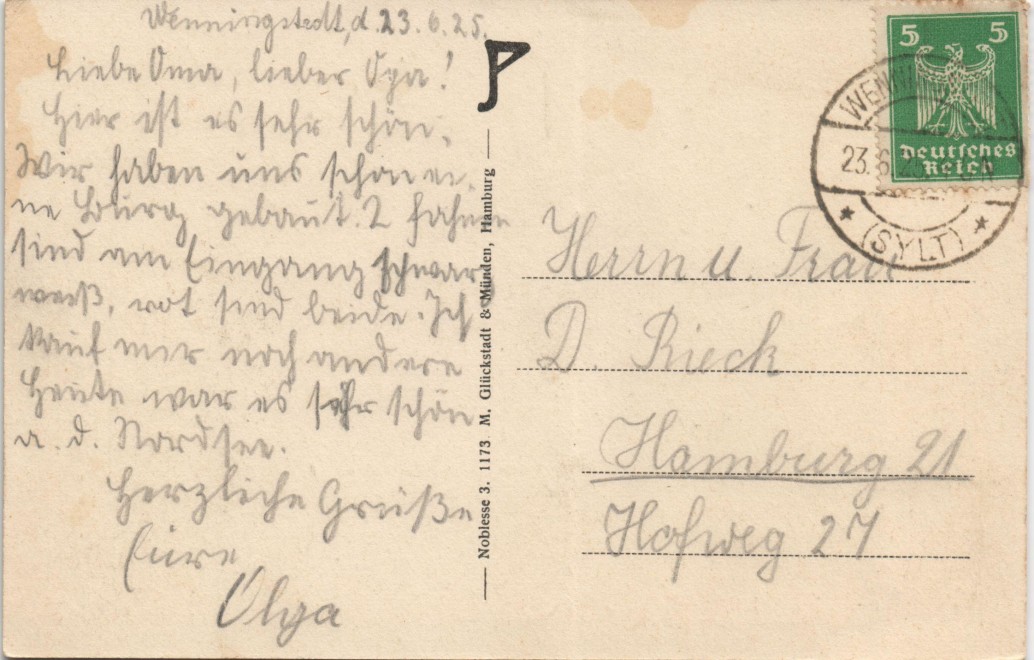 Wenningstedt, d. 23.6.25.
Liebe Oma, lieber Opa!
Hier ist es sehr schön.
Wir haben uns schon ei-
ne Burg gebaut. 2 Fahnen
sind am Eingang schwarz
weiß, rot sind beide. Ich
kauf mir noch andere
Heute war es sehr schön
a. d. Nordsee.
Herzliche Grüße
Eure
Olga
Noblesse 3. 1173 M. Glückstadt & Münden, Hamburg
5 5
Deutsches
Reich
23.6.25
(SYLT)
Herrn u. Frau
D. Rieck
Hamburg 21
Hofweg 27